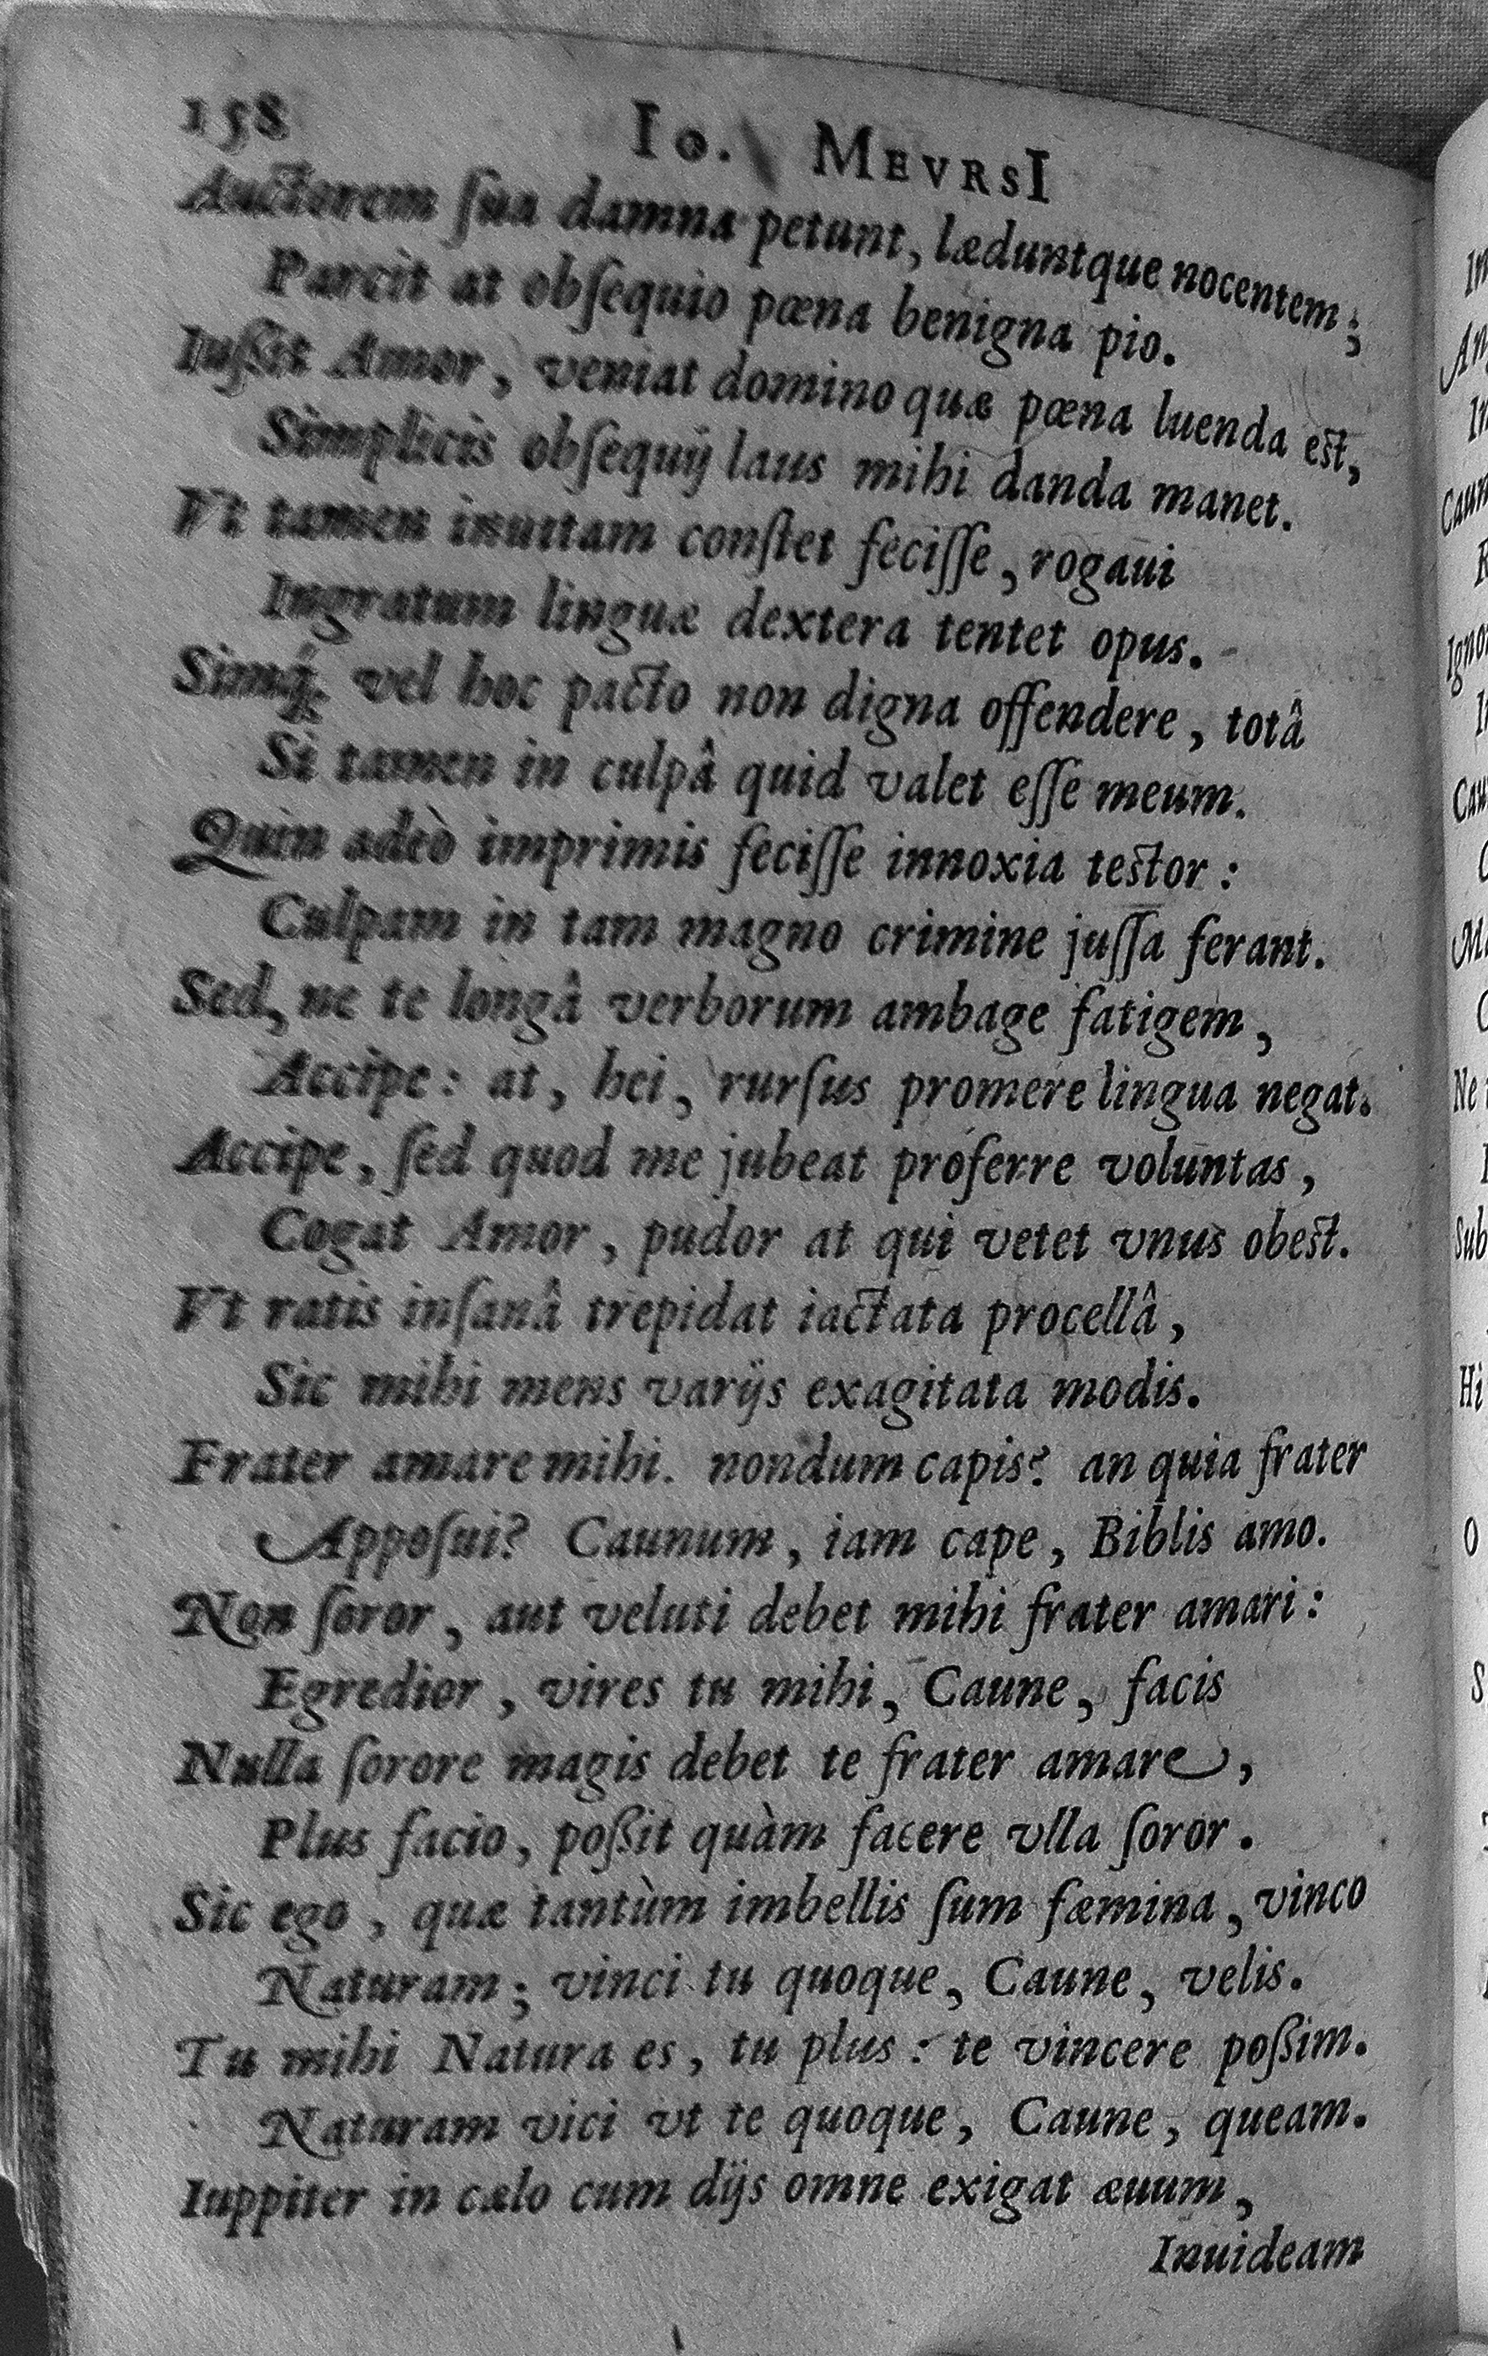 158 Io. MEVRSI
Auctorem ſua damna petunt, læduntque nocentem;
Parcit at obſequio pœna benigna pio.
Iuſſit Amor, veniat domino quæ pœna luenda est,
Simplicis obſequij laus mihi danda manet.
Vt tamen inuitam conſtet feciſſe, rogaui
Ingratum linguæ dextera tentet opus.
Simq́; vel hoc pacto non digna offendere, totâ
Si tamen in culpâ quid valet eſſe meum.
Quin adeò imprimis feciſſe innoxia testor:
Culpam in tam magno crimine juſſa ferant.
Sed, ne te longâ verborum ambage fatigem,
Accipe: at, hei, rurſus promere lingua negat.
Accipe, ſed quod me jubeat proferre voluntas,
Cogat Amor, pudor at qui vetet vnus obest.
Vt ratis inſanâ trepidat iactata procellâ,
Sic mihi mens varijs exagitata modis.
Frater amare mihi. nondum capis? an quia frater
Appoſui? Caunum, iam cape, Biblis amo.
Non ſoror, aut veluti debet mihi frater amari:
Egredior, vires tu mihi, Caune, facis
Nulla ſorore magis debet te frater amare,
Plus facio, poßit quàm facere vlla ſoror.
Sic ego, quæ tantùm imbellis ſum fæmina, vinco
Naturam; vinci tu quoque, Caune, velis.
Tu mihi Natura es, tu plus: te vincere poßim.
Naturam vici vt te quoque, Caune, queam.
Iuppiter in cælo cum dijs omne exigat æuum,
Inuideam